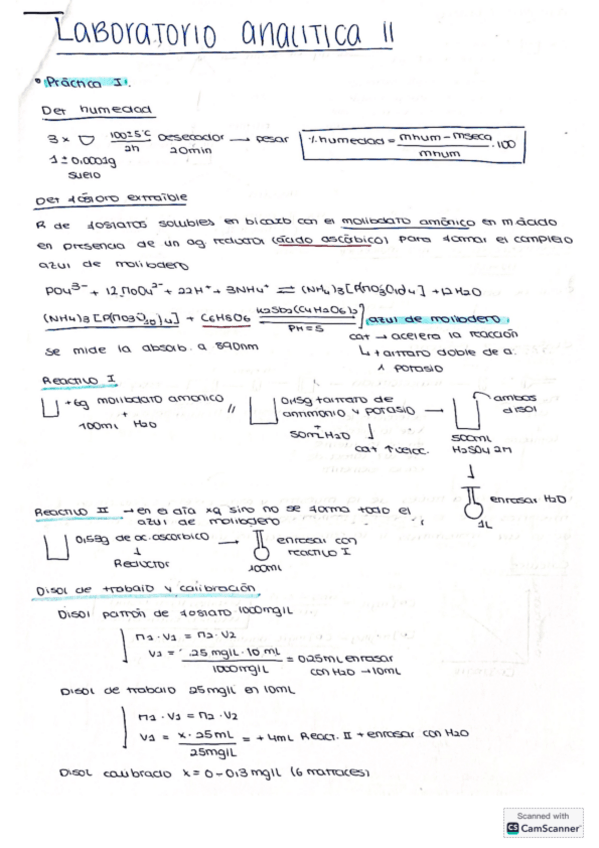 LABORATORIO ANALITICA II
• Práctica I.
Det humedad
3 x 100±5°C 2h Desecador 20min → pesar %humedad = mhum - mseca / mhum . 100
1 ± 0,0001g
suelo
Det fósforo extraíble
R de fosfatos solubles en bicarb con el molibdato amónico en m ácido
en presencia de un ag reductor (ácido ascórbico) para formar el complejo
azul de molibdeno
PO4³⁻ + 12 MoO4²⁻ + 22H⁺ + 3NH4⁺ ⇌ (NH4)3[P(Mo3O10)4] + 12H2O
(NH4)3[P(Mo3O10)4] + C6H8O6 K2Sb2(C4H2O6)2 PH=5 azul de molibdeno
cat → acelera la reacción
se mide la absorb. a 890nm
↳ tartrato doble de a.
y potasio
Reactivo I
+6g molibdato amonico // 0,15g tartrato de → ambos
+ antimonio y potasio disol
100ml H2O + 50mL H2O ↓ 500mL
cat ↑ veloc. H2SO4 2M
↓
enrasar H2O
1L
Reactivo II → en el día xq sino no se forma todo el
azul de molibdeno
0,58g de ac. ascorbico → enrasar con
↓ reactivo I
Reductor 100ml
Disol de trabajo y calibración
Disol patrón de fosfato 1000mg/L
M1 · V1 = M2 · V2
V1 = 25 mg/L · 10 mL / 1000mg/L = 0,25mL enrasar
con H2O → 10mL
Disol de trabajo 25mg/L en 10mL
M1 · V1 = M2 · V2
V1 = x · 25mL / 25mg/L = + 4mL React. II + enrasar con H2O
Disol calibrado x = 0-0,3 mg/L (6 matraces)
Scanned with
CS CamScanner